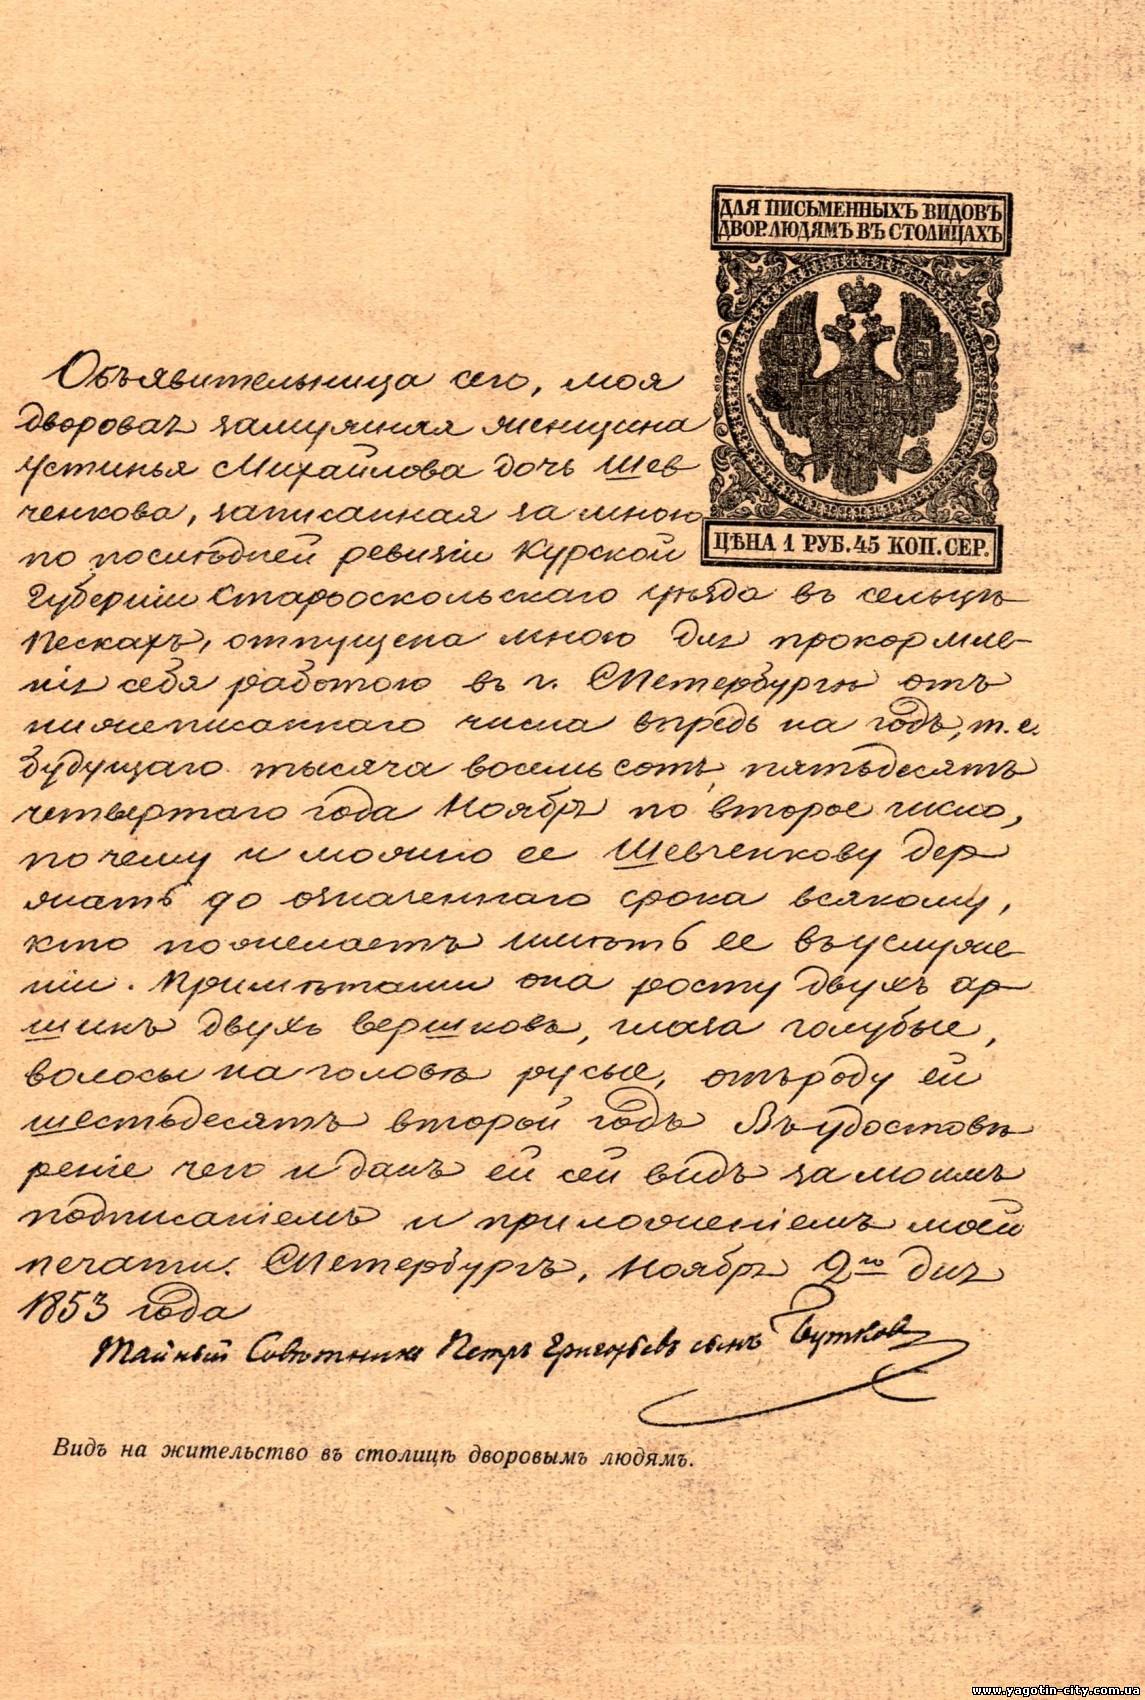 ДЛЯ ПИСЬМЕННЫХЪ ВИДОВЪ
ДВОР. ЛЮДЯМЪ ВЪ СТОЛИЦАХЪ
ЦѢНА 1 РУБ. 45 КОП. СЕР.
Объявительница сего, моя
дворовая замужняя женщина
Устинья Михайлова дочь Шев
ченкова, записанная за мною
по послѣдней ревизіи Курской
Губерніи Старооскольскаго уѣзда въ сельцѣ
Пескахъ, отпущена мною для прокормле-
нія себя работою въ г. СПетербургѣ отъ
нижеписаннаго числа впредь на годъ, т. е.
будущаго тысяча восемьсотъ пятьдесятъ
четвертаго года Ноября по второе число,
почему и можно ее Шевченкову дер
жать до означеннаго срока всякому,
кто пожелаетъ имѣть ее въ услуже
ніи. Примѣтами она росту двухъ ар
шинъ двухъ вершковъ, глаза голубые,
волосы на головѣ русые, отъ роду ей
шестьдесятъ второй годъ Въ удостовѣ
реніе чего и данъ ей сей видъ за моимъ
подписаніемъ и приложеніемъ моей
печати. СПетербургъ, Ноября 2го дня
1853 года
Тайный Совѣтникъ Петръ Григорьевъ сынъ Бутковъ
Видъ на жительство въ столицѣ дворовымъ людямъ.
www.yagotin-city.com.ua